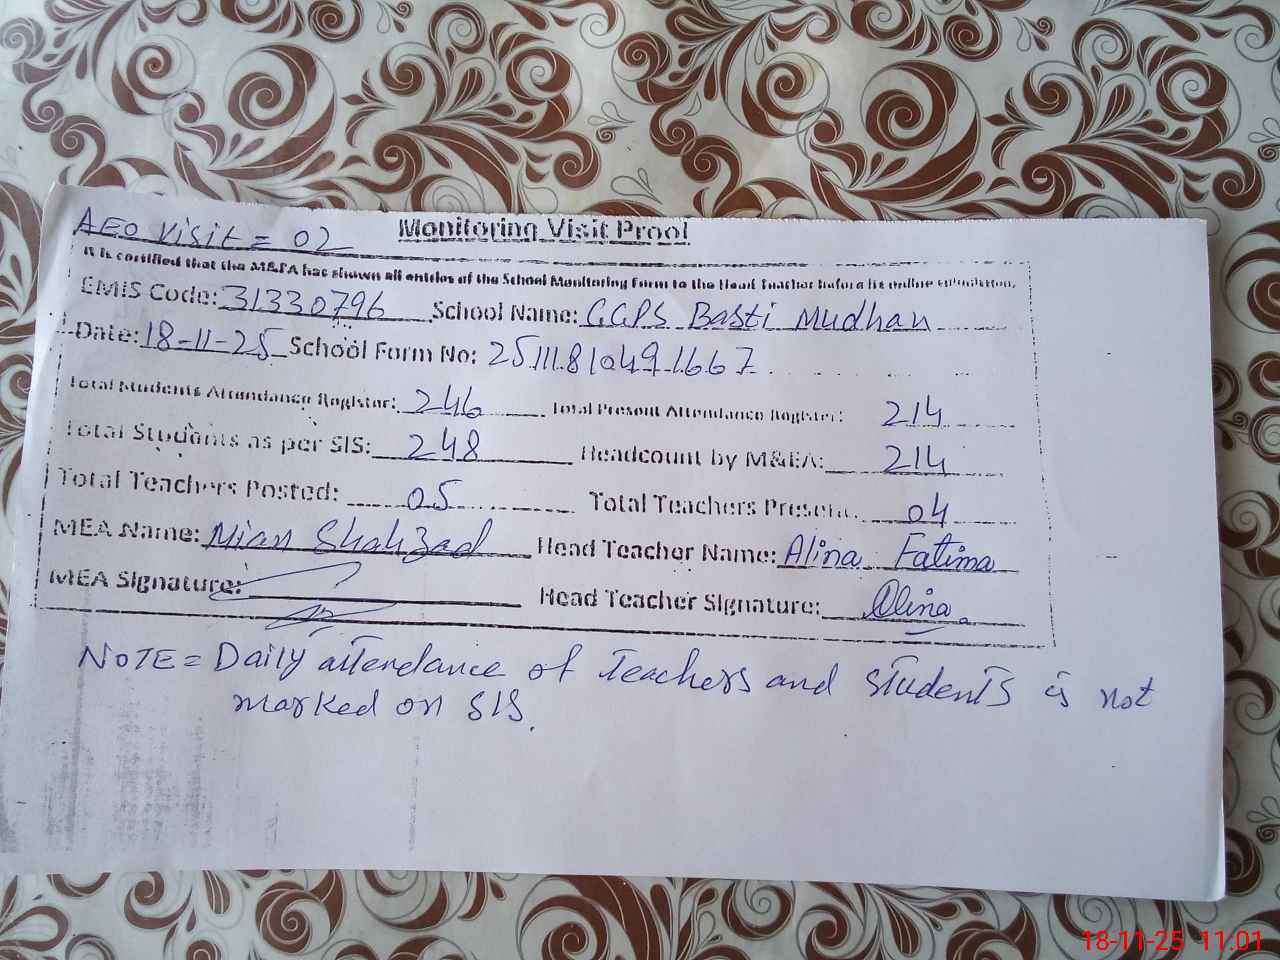 AEO Visit = 02
Monitoring Visit Proof
It is certified that the M&EA has shown all entries of the School Monitoring Form to the Head Teacher before its online submission.
EMIS Code: 31330796 School Name: GGPS Basti Mudhan
Date: 18-11-25 School Form No: 25111810491667
Total Students Attendance Register: 246 Total Present Attendance Register: 214
Total Students as per SIS: 248 Headcount by M&EA: 214
Total Teachers Posted: 05 Total Teachers Present: 04
MEA Name: Mian Shahzad Head Teacher Name: Alina Fatima
MEA Signature: Head Teacher Signature: Alina
NOTE = Daily attendance of Teachers and students is not
marked on SIS.
18-11-25 11.01